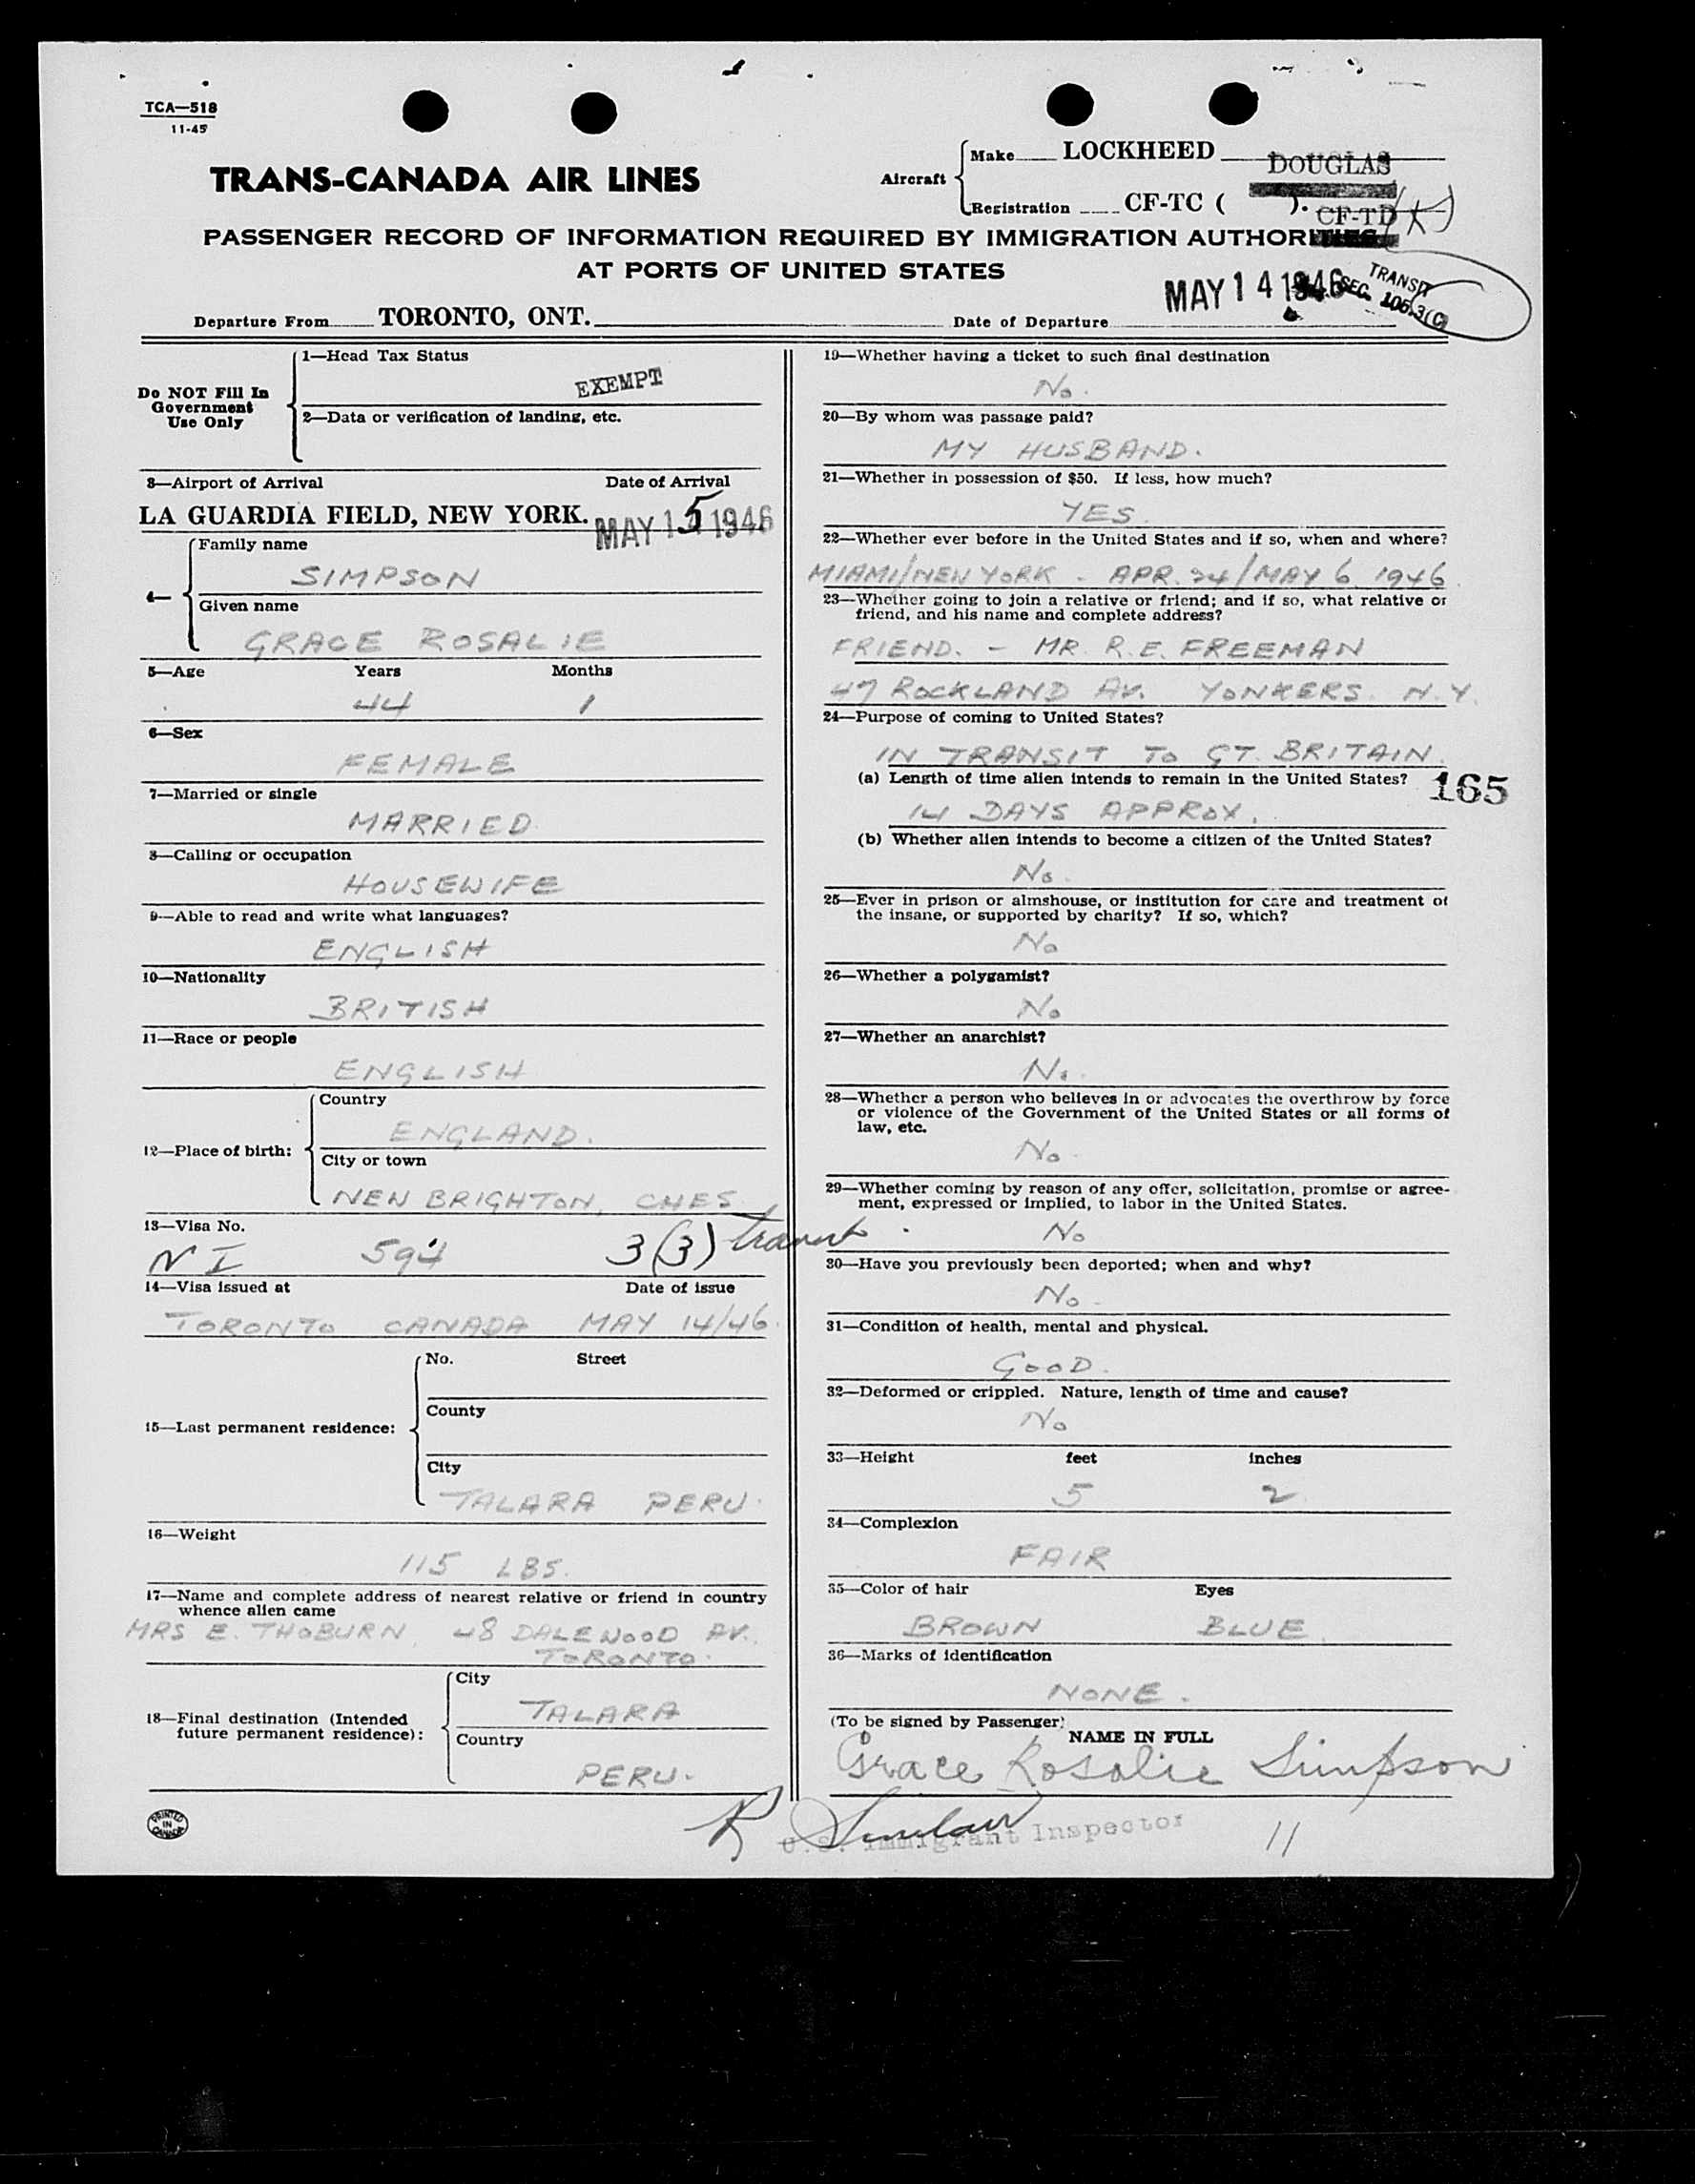 TCA—518
11-45
TRANS-CANADA AIR LINES
Aircraft
Make LOCKHEED DOUGLAS
Registration CF-TC ( ). CF-TD (K)
PASSENGER RECORD OF INFORMATION REQUIRED BY IMMIGRATION AUTHORITIES
AT PORTS OF UNITED STATES
TRANSIT
SEC. 106.3(C)
Departure From TORONTO, ONT. Date of Departure MAY 14 1946
Do NOT Fill In
Government
Use Only
1—Head Tax Status
EXEMPT
2—Data or verification of landing, etc.
3—Airport of Arrival Date of Arrival
LA GUARDIA FIELD, NEW YORK. MAY 15 1946
4—
Family name
SIMPSON
Given name
GRACE ROSALIE
5—Age Years Months
44 1
6—Sex
FEMALE
7—Married or single
MARRIED
8—Calling or occupation
HOUSEWIFE
9—Able to read and write what languages?
ENGLISH
10—Nationality
BRITISH
11—Race or people
ENGLISH
12—Place of birth:
Country
ENGLAND.
City or town
NEW BRIGHTON, CHES.
13—Visa No.
NI 594 3(3) transit
14—Visa issued at Date of issue
TORONTO CANADA MAY 14/46.
15—Last permanent residence:
No. Street
County
City
TALARA PERU.
16—Weight
115 LBS.
17—Name and complete address of nearest relative or friend in country
whence alien came
MRS E. THOBURN, 48 DALEWOOD AV.,
TORONTO.
18—Final destination (Intended
future permanent residence):
City
TALARA
Country
PERU.
PRINTED
IN
CANADA
19—Whether having a ticket to such final destination
No.
20—By whom was passage paid?
MY HUSBAND.
21—Whether in possession of $50. If less, how much?
YES.
22—Whether ever before in the United States and if so, when and where?
MIAMI/NEW YORK - APR. 24/MAY 6. 1946.
23—Whether going to join a relative or friend; and if so, what relative or
friend, and his name and complete address?
FRIEND. - MR. R.E. FREEMAN
47 ROCKLAND AV. YONKERS. N.Y.
24—Purpose of coming to United States?
IN TRANSIT TO GT. BRITAIN.
(a) Length of time alien intends to remain in the United States?
165
14 DAYS APPROX.
(b) Whether alien intends to become a citizen of the United States?
No.
25—Ever in prison or almshouse, or institution for care and treatment of
the insane, or supported by charity? If so, which?
No
26—Whether a polygamist?
No
27—Whether an anarchist?
No.
28—Whether a person who believes in or advocates the overthrow by force
or violence of the Government of the United States or all forms of
law, etc.
No.
29—Whether coming by reason of any offer, solicitation, promise or agree-
ment, expressed or implied, to labor in the United States.
No
30—Have you previously been deported; when and why?
No.
31—Condition of health, mental and physical.
GOOD.
32—Deformed or crippled. Nature, length of time and cause?
No
33—Height feet inches
5 2
34—Complexion
FAIR
35—Color of hair Eyes
BROWN BLUE.
36—Marks of identification
NONE.
(To be signed by Passenger)
NAME IN FULL
Grace Rosalie Simpson
R Sinclair
U.S. Immigrant Inspector
11